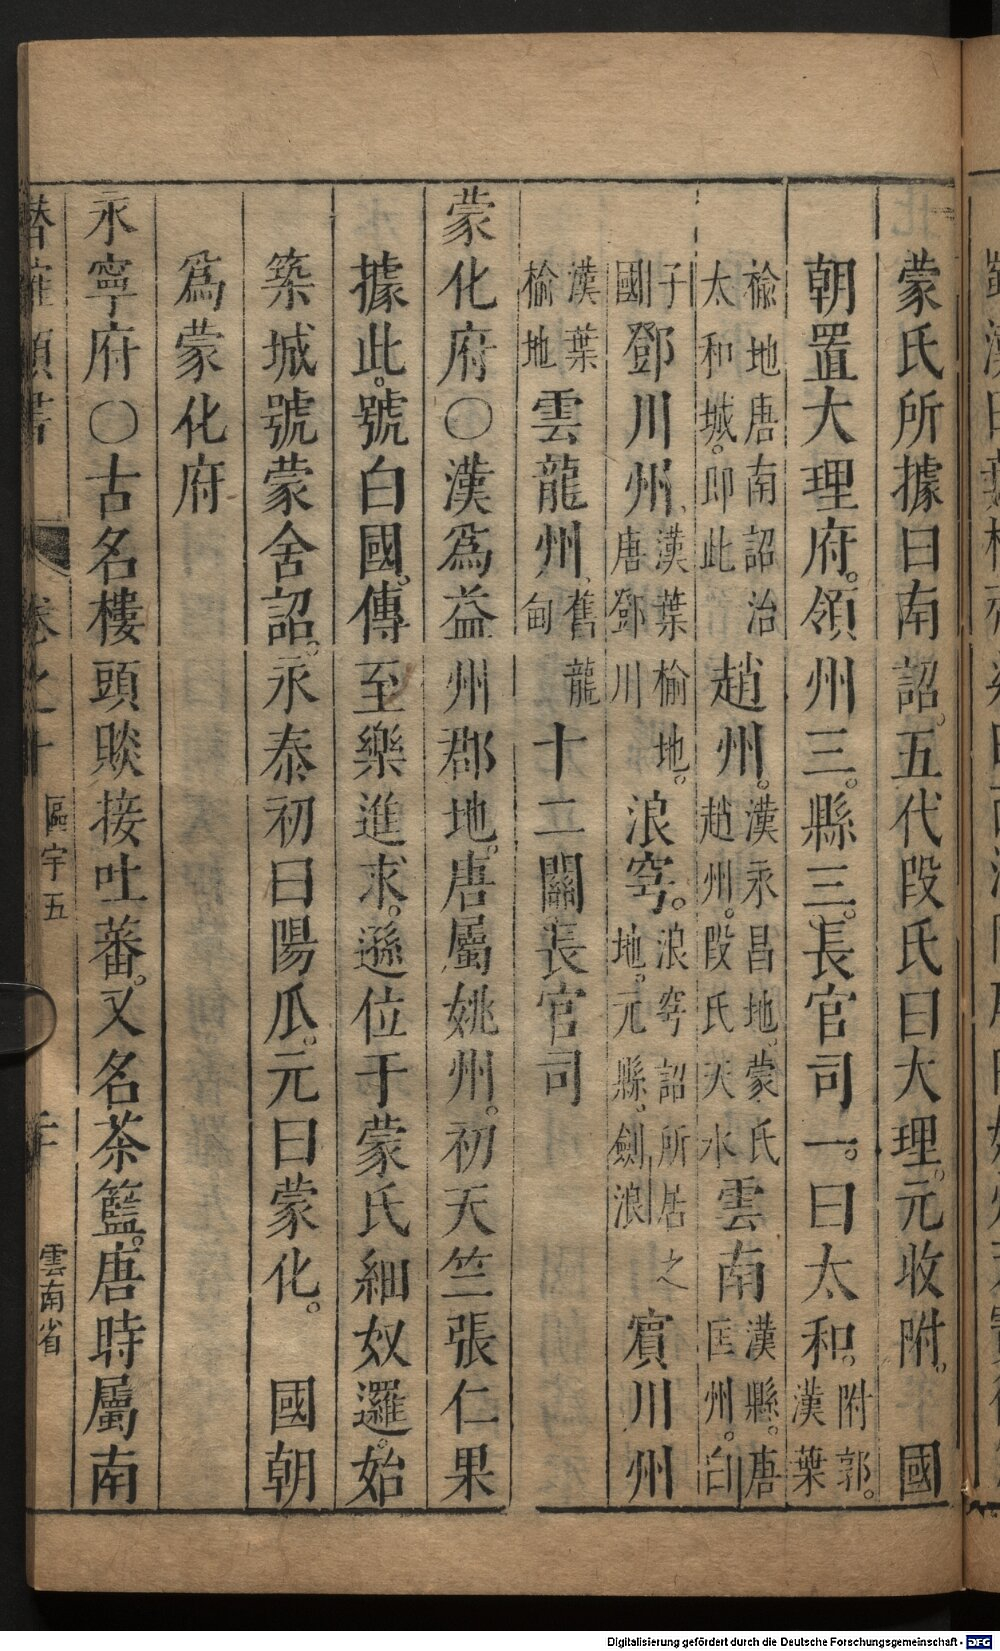 蒙氏所據曰南詔。五代段氏曰大理。元收附。 國
朝置大理府。領州三。縣三。長官司一。曰太和。附郭。漢葉
榆地唐南詔治太和城。即此趙州。漢永昌地。蒙氏趙州。段氏天水雲南漢縣。唐匡州。白
子國鄧川州、漢葉榆地。唐鄧川浪穹。浪穹詔所居之地。元縣。劍浪賓川州
漢葉榆地雲龍州、舊龍甸十二關長官司
蒙化府○漢爲益州郡地。唐屬姚州。初天竺張仁果
據此。號白國。傳至樂進求。遜位于蒙氏細奴邏。始
築城號蒙舍詔。永泰初曰陽瓜。元曰蒙化。 國朝
爲蒙化府
永寧府○古名樓頭賧接吐蕃。又名茶籃。唐時屬南
潛確類書 卷之十 區宇五 雲南省
Digitalisierung gefördert durch die Deutsche Forschungsgemeinschaft - DFG